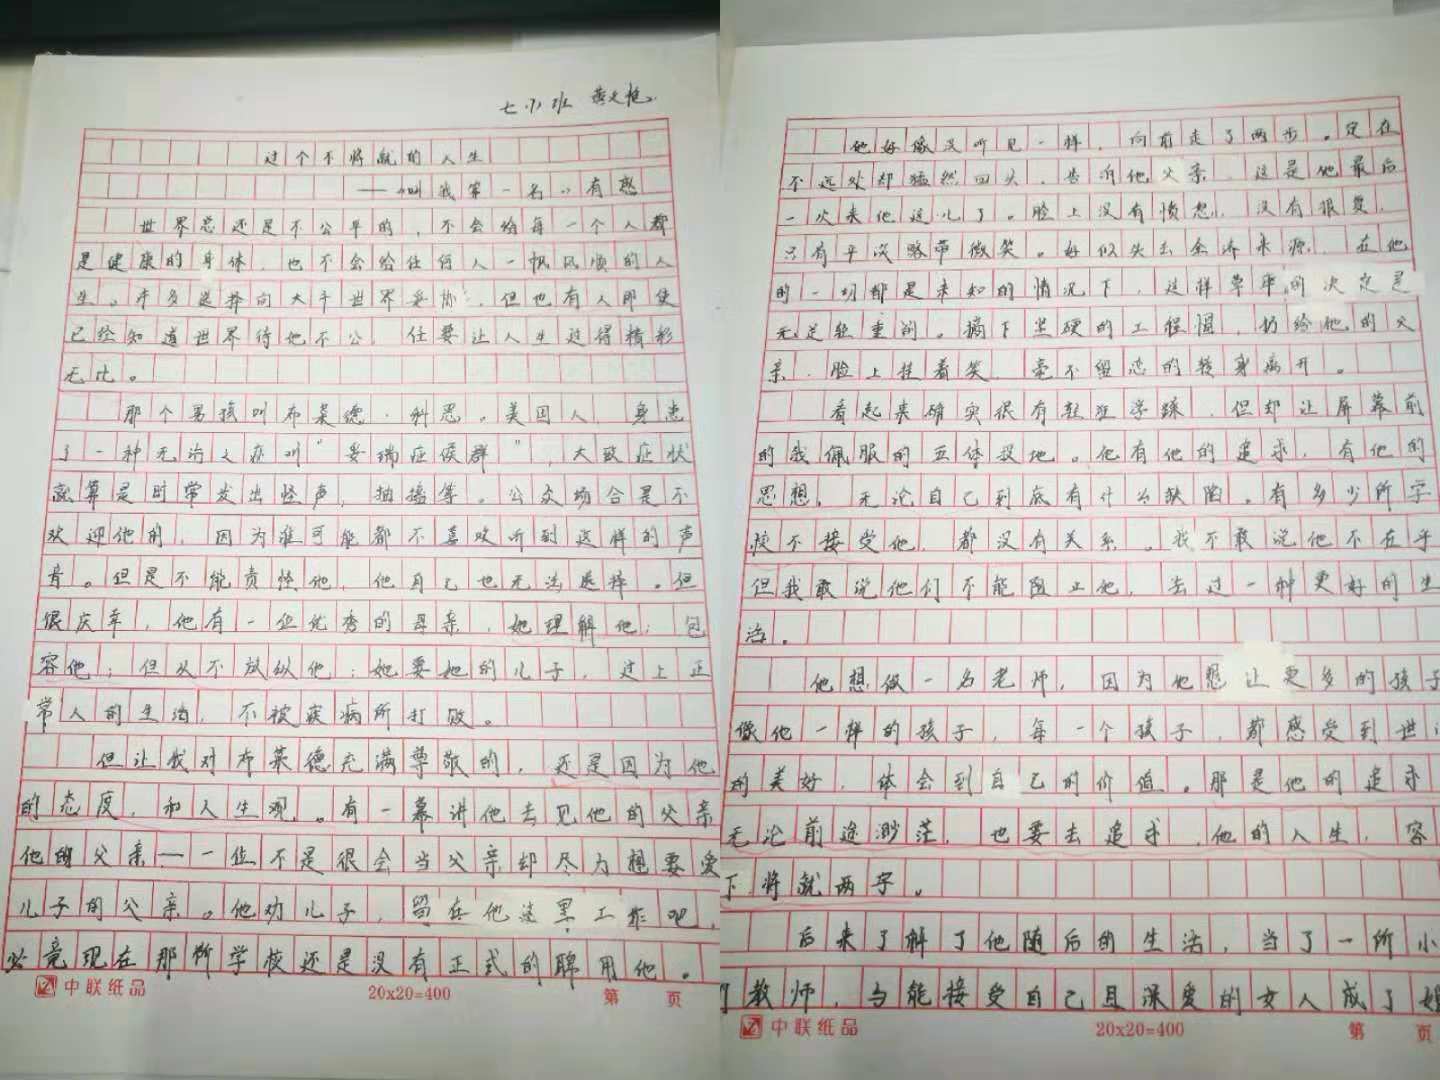 七(1)班 黄文艳
过个不将就的人生
——《叫我第一名》有感
世界总还是不公平的,不会给每一个人都
是健康的身体,也不会给任何人一帆风顺的人
生。许多选择向大千世界妥协,但也有人即使
已经知道世界待他不公,任要让人生过得精彩
无比。
那个男孩叫布莱德·科恩。美国人,身患
了一种无治之症叫“妥瑞症候群”,大致症状
就算是时常发出怪声,抽搐等。公众场合是不
欢迎他的,因为谁可能都不喜欢听到这样的声
音。但是不能责怪他,他自己也无法选择。但
很庆幸,他有一位优秀的母亲,她理解他;包
容他;但从不放纵他;她要她的儿子,过上正
常人的生活,不被疾病所打败。
但让我对布莱德充满尊敬的,还是因为他
的态度,和人生观。有一幕讲他去见他的父亲
他的父亲——一位不是很会当父亲却尽力想要爱
儿子的父亲。他劝儿子,留在他这里工作吧,
必竟现在那所学校还是没有正式的聘用他。
中联纸品 20x20=400 第 页
他好像没听见一样,向前走了两步。定在
不远处却猛然回头,告诉他父亲,这是他最后
一次来他这儿了。脸上没有愤怒,没有狠意,
只有平淡略带微笑。好似失去经济来源,在他
的一切都是未知的情况下,这样草率的决定是
无足轻重的。摘下坚硬的工程帽,扔给他的父
亲,脸上挂着笑,毫不留恋的转身离开。
看起来确实很有轻狂浮躁,但却让屏幕前
的我佩服的五体投地。他有他的追求,有他的
思想,无论自己到底有什么缺陷。有多少所学
校不接受他,都没有关系。我不敢说他不在乎
但我敢说他们不能阻止他,去过一种更好的生
活。
他想做一名老师,因为他想让更多的孩子
像他一样的孩子,每一个孩子,都感受到世
的美好,体会到自己的价值。那是他的追求
无论前途渺茫,也要去追求,他的人生,容
下将就两字。
后来了解了他随后的生活,当了一所小
教师,与能接受自己且深爱的女人成了婚
中联纸品 20x20=400 第 页